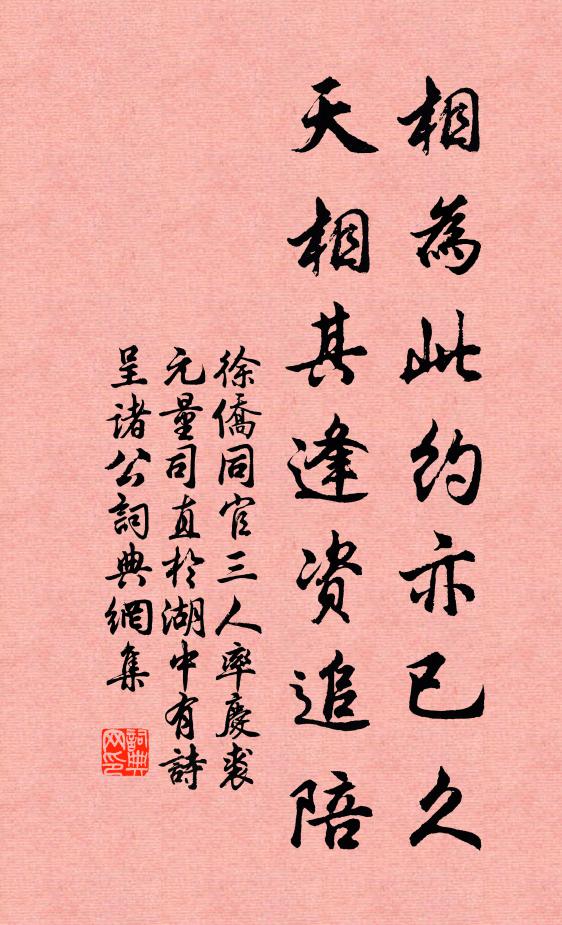 相為此約亦已久
天相其逢资追陪
徐僑同官三人率慶裘
元量司直於湖中有詩
呈诸公詞典網集
詞典网印